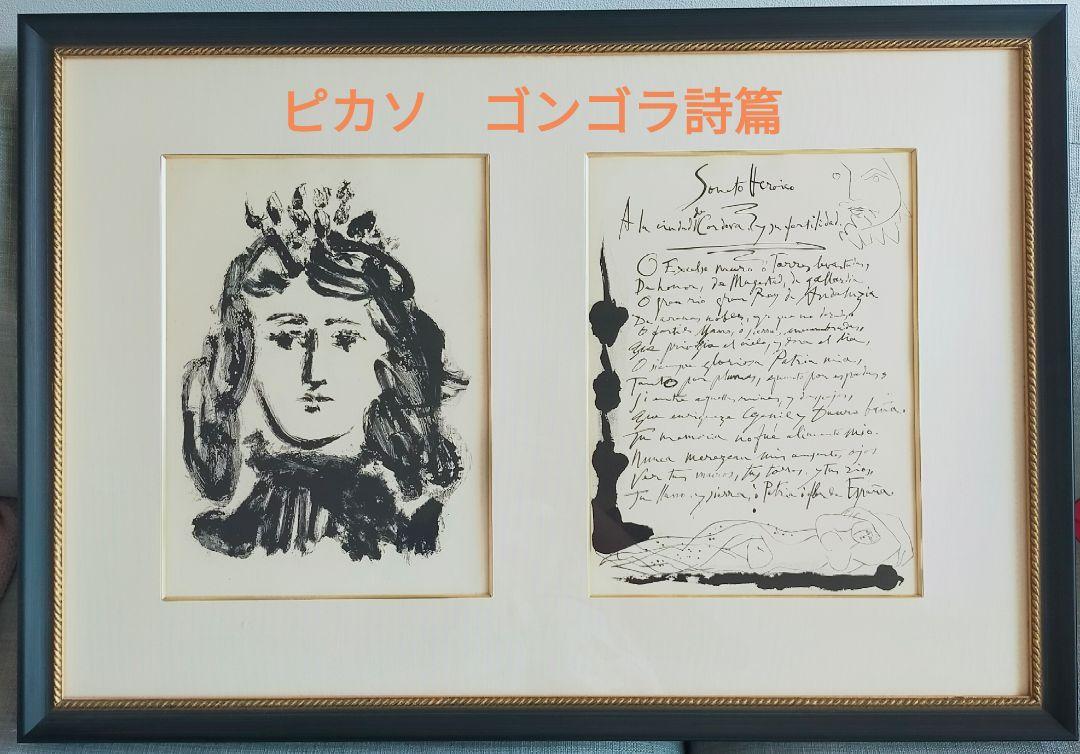 ピカソ　ゴンゴラ詩篇
Soneto Heroico
A la ciudad de Cordova y su fertilidad
O Excelso muro o Torres levantadas,
De honor, de Magestad, de gallardia
O gran rio gran Rey de Andaluzia
De arenas nobles, ya que no doradas
O fertil llano, o sierras encumbradas,
Que privilegia el cielo, y dora el dia,
O siempre gloriosa Patria mia,
Tanto por plumas, quanto por espadas,
Si entre aquellas ruinas, y despojos,
Que enriqueze Genil y Dauro baña.
Tu memoria no fué alimento mio.
Nunca merezcan mis ausentes ojos
Ver tus muros, tus torres, y tus rios,
Tu llano y sierra, o Patria o flor de España